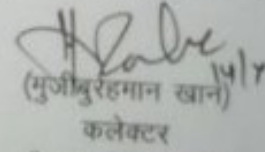 14/7
(मुजीबुरहमान खान)
कलेक्टर